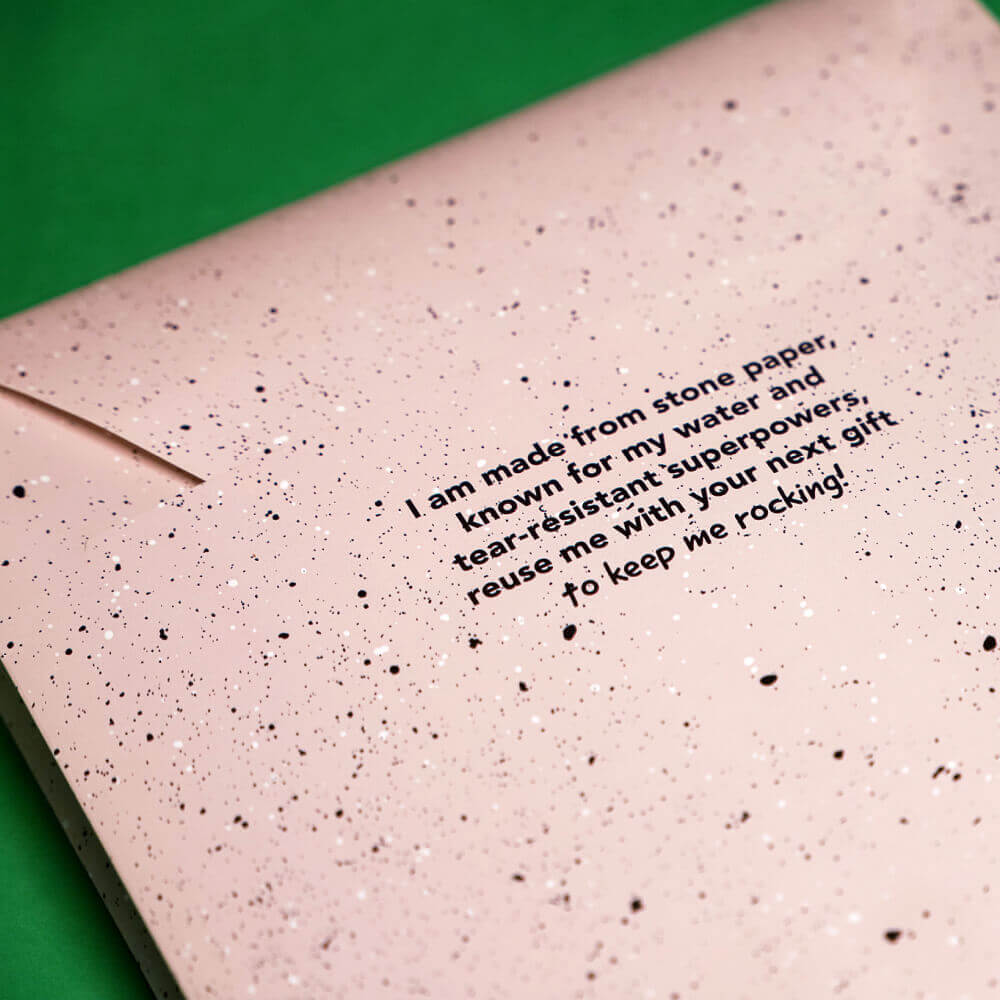 I am made from stone paper,
known for my water and
tear-resistant superpowers,
reuse me with your next gift
to keep me rocking!